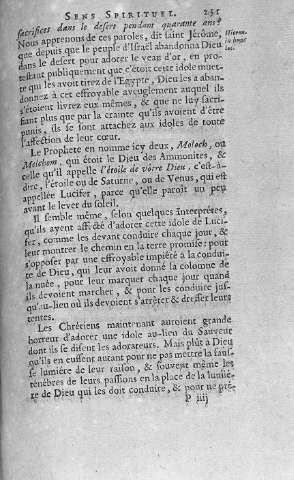 SENS SPIRITUEL. 231
sacrifices dans le desert pendant quarante ans?
Nous apprenons de ces paroles, dit saint Jérôme,
que depuis que le peuple d'Israel abandonna Dieu
dans le desert pour adorer le veau d'or, en pro-
testant publiquement que c'étoit cette idole muet-
te qui les avoit tirez de l'Egypte, Dieu les a aban-
donnez à cet effroyable aveuglement auquel ils
s'étoient livrez eux mêmes, & que ne luy sacri-
fiant plus que par la crainte qu'ils avoient d'être
punis, ils se sont attachez aux idoles de toute
l'affection de leur cœur.
Hieron.
in hunc
loc.
Le Prophete en nomme icy deux, Moloch, ou
Melchom, qui étoit le Dieu des Ammonites, &
celle qu'il appelle l'étoile de vôtre Dieu, c'est-à-
dire, l'étoile ou de Saturne, ou de Venus, qui est
appellée Lucifer, parce qu'elle paroît un peu
avant le lever du soleil.
Il semble même, selon quelques Interpretes,
qu'ils ayent affecté d'adorer cette idole de Luci-
fer, comme les devant conduire chaque jour, &
leur montrer le chemin en la terre promise: pour
s'opposer par une effroyable impiété à la condui-
te de Dieu, qui leur avoit donné la colomne de
la nuée, pour leur marquer chaque jour quand
ils devoient marcher, & pour les conduire jus-
qu'au-lieu où ils devoient s'arrêter & dresser leurs
tentes.
Les Chrétiens maintenant auroient grande
horreur d'adorer une idole au-lieu du Sauveur
dont ils se disent les adorateurs. Mais plût à Dieu
qu'ils en eussent autant pour ne pas mettre la faus-
se lumiere de leur raison, & souvent même les
ténèbres de leurs passions en la place de la lumie-
re de Dieu qui les doit conduire, & pour ne pré-
P iiij